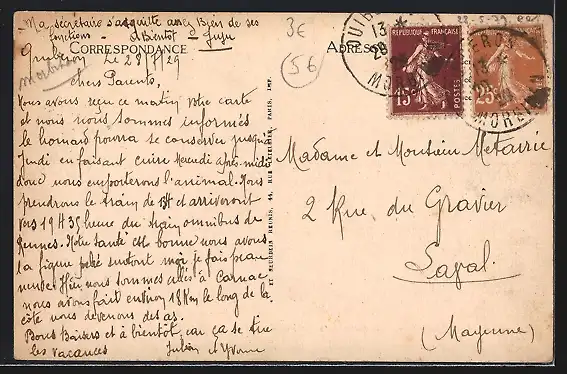 Ma secrétaire s'acquitte avec Bien de ses
fonctions - à Bientôt Juju
CORRESPONDANCE
ADRES
Quiberon Le 28/8/29
Morbihan
chers Parents,
Nous avons reçu ce matin votre carte
et nous nous sommes informés
le homard pourra se conserver jusqu'à
Jeudi en faisant cuire Mercredi après-midi
donc nous emporterons l'animal. Nous
prendrons le train de 13h et arriveront
vers 19H35 heure du train omnibus de
Rennes. Notre santé est bonne nous avons
la figure pelée surtout moi je fais peau
neuve. Hier nous sommes allés à Carnac
nous avons fait environ 18 Km le long de la
côte nous devenons des as.
Bons Baisers et à bientôt, car ça se tire
les vacances
Julien et Yvonne
3€
5€
RÉPUBLIQUE FRANÇAISE
15c
POSTES
25c
13
28
MORBIHAN
Madame et Monsieur Métairie
2 Rue du Gravier
Laval.
(Mayenne)